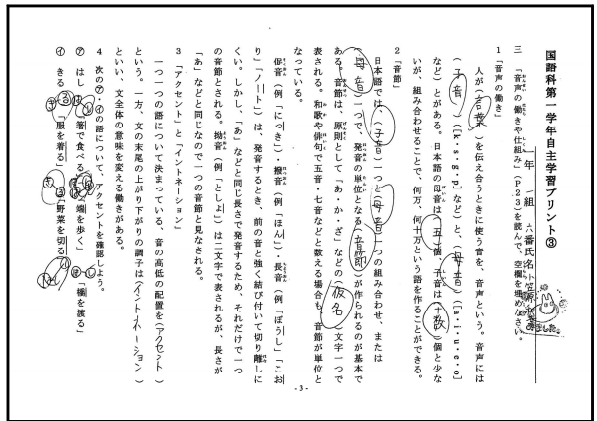 国語科第一学年自主学習プリント③
年一組六番氏名
三 「音声の働きや仕組み」(P23)を読んで、空欄を埋めなさい。
1 「音声の働き」
人が(言葉)を伝え合うときに使う音を、音声という。音声には
(子音)([k・s・g・p]など)と、(母音)([a・i・u・e・o]
など)とがある。日本語の母音は(五)個、子音は(十数)個と少な
いが、組み合わせることで、何万、何十万という語を作ることができる。
2 「音節」
日本語では、(子音)一つと(母音)一つの組み合わせ、または
(母音)一つで、発音の単位となる(音節)が作られるのが基本で
ある。音節は、原則として「あ・か・ざ」などの(仮名)文字一つで
表される。和歌や俳句で五音・七音などと数える場合も、音節が単位と
なっている。
促音(例「にっき」)・撥音(例「ほん」)・長音(例「ぼうし」「こお
り」「ノート」)は、発音するとき、前の音と強く結び付いて切り離しに
くい。しかし、「あ」などと同じ長さで発音するため、それだけで一つ
の音節とされる。拗音(例「としょ」)は二文字で表されるが、長さが
「あ」などと同じなので一つの音節と見なされる。
3 「アクセント」と「イントネーション」
一つ一つの語について決まっている、音の高低の配置を(アクセント)
という。一方、文の末尾の上がり下がりの調子は(イントネーション)
といい、文全体の意味を変える働きがある。
4 次の㋐・㋑の語について、アクセントを確認しよう。
㋐ はし 「箸で食べる」「端を歩く」「橋を渡る」
㋑ きる 「服を着る」「野菜を切る」
- 3 -